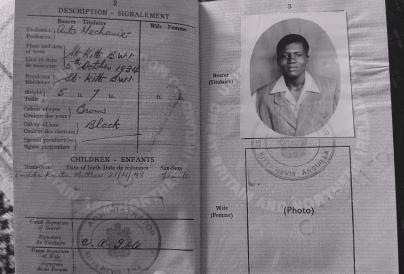 2
DESCRIPTION - SIGNALEMENT
Bearer - Titulaire
Wife - Femme
Profession Auto Mechanic
Profession
Place and date
of birth St. Kitts B.W.I.
Lieu et date
de naissance 5th October 1934
Residence St. Kitts B.W.I.
Résidence
Height 5 ft. 7 in.
Taille
Colour of eyes Brown
Couleur des yeux
Colour of hair Black
Couleur des cheveux
Special peculiarities
Signes particuliers
CHILDREN - ENFANTS
Name-Nom Date of birth-Date de naissance Sex-Sexe
Usual Signature
of Bearer
Signature
du Titulaire
Usual Signature
of Wife
Signature
de sa Femme
ADMINISTRATION
3
Bearer
(Titulaire)
Wife
(Femme)
(Photo)